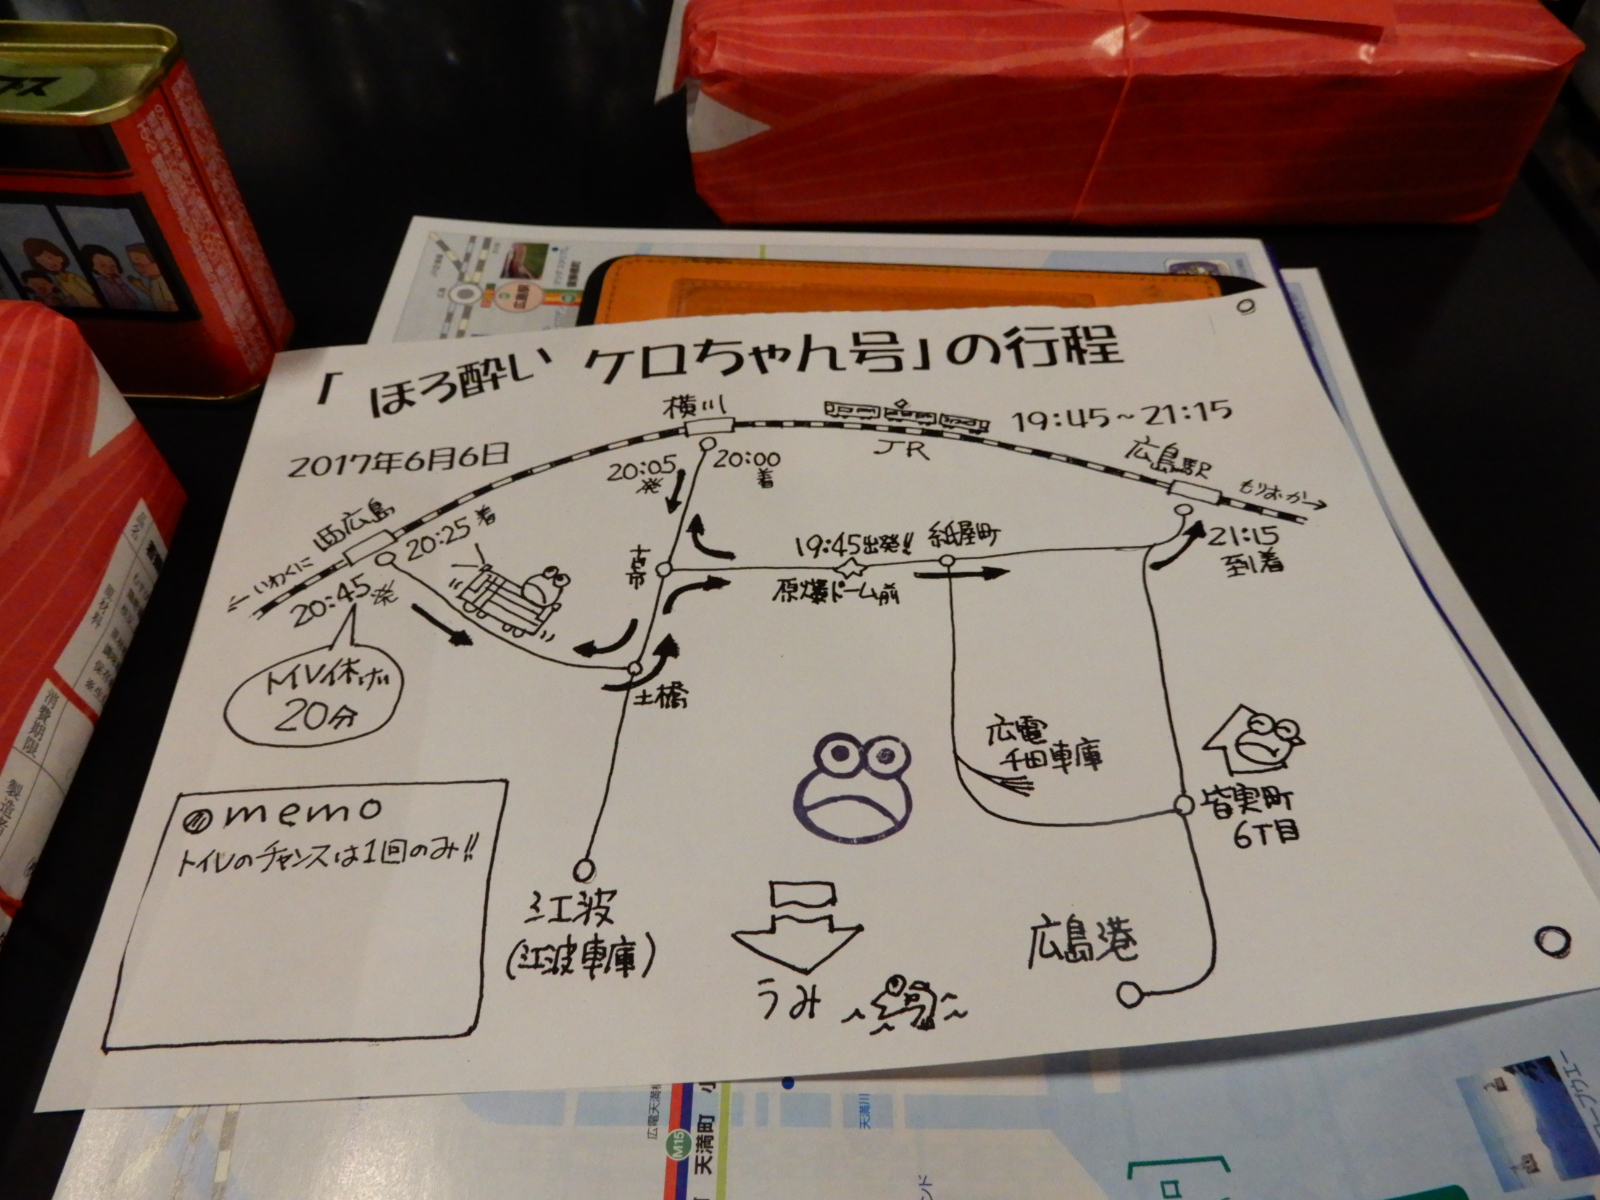 「ほろ酔い ケロちゃん号」の行程
2017年6月6日
19:45～21:15
横川
JR
広島駅
もりおかへ
20:05
発
20:00
着
西広島
20:25着
いわくに
20:45発
トイレ休けい
20分
十日市
19:45出発!!
紙屋町
原爆ドーム前
21:15
到着
土橋
広電
千田車庫
皆実町
6丁目
memo
トイレのチャンスは1回のみ!!
江波
(江波車庫)
うみ
広島港
広島駅
消費期限
原材料
製造者
M15
天満町
小
広電天満橋
天満川